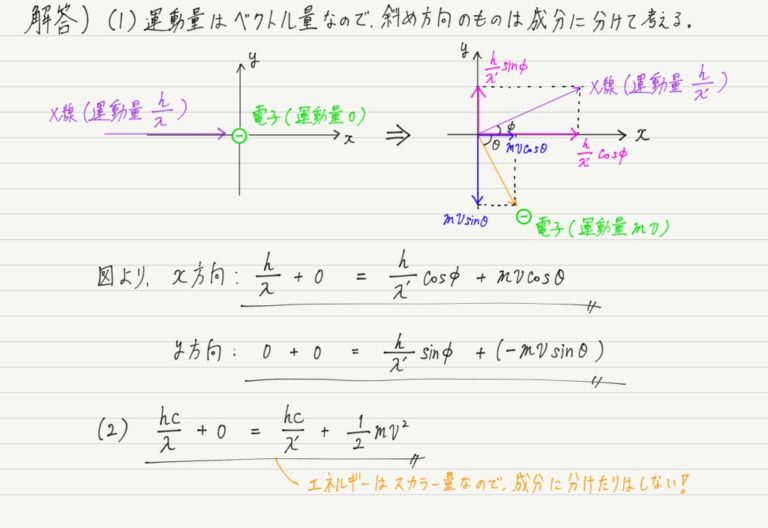 解答) (1) 運動量はベクトル量なので、斜め方向のものは成分に分けて考える。
y
X線 (運動量 h/λ)
電子 (運動量 0)
x
⇒
y
h/λ' sinφ
X線 (運動量 h/λ')
φ
θ
x
mvcosθ
h/λ' cosφ
mvsinθ
電子 (運動量 mv)
図より、x方向: h/λ + 0 = h/λ' cosφ + mvcosθ
y方向: 0 + 0 = h/λ' sinφ + (-mvsinθ)
(2) hc/λ + 0 = hc/λ' + 1/2 mv²
エネルギーはスカラー量なので、成分に分けたりはしない!